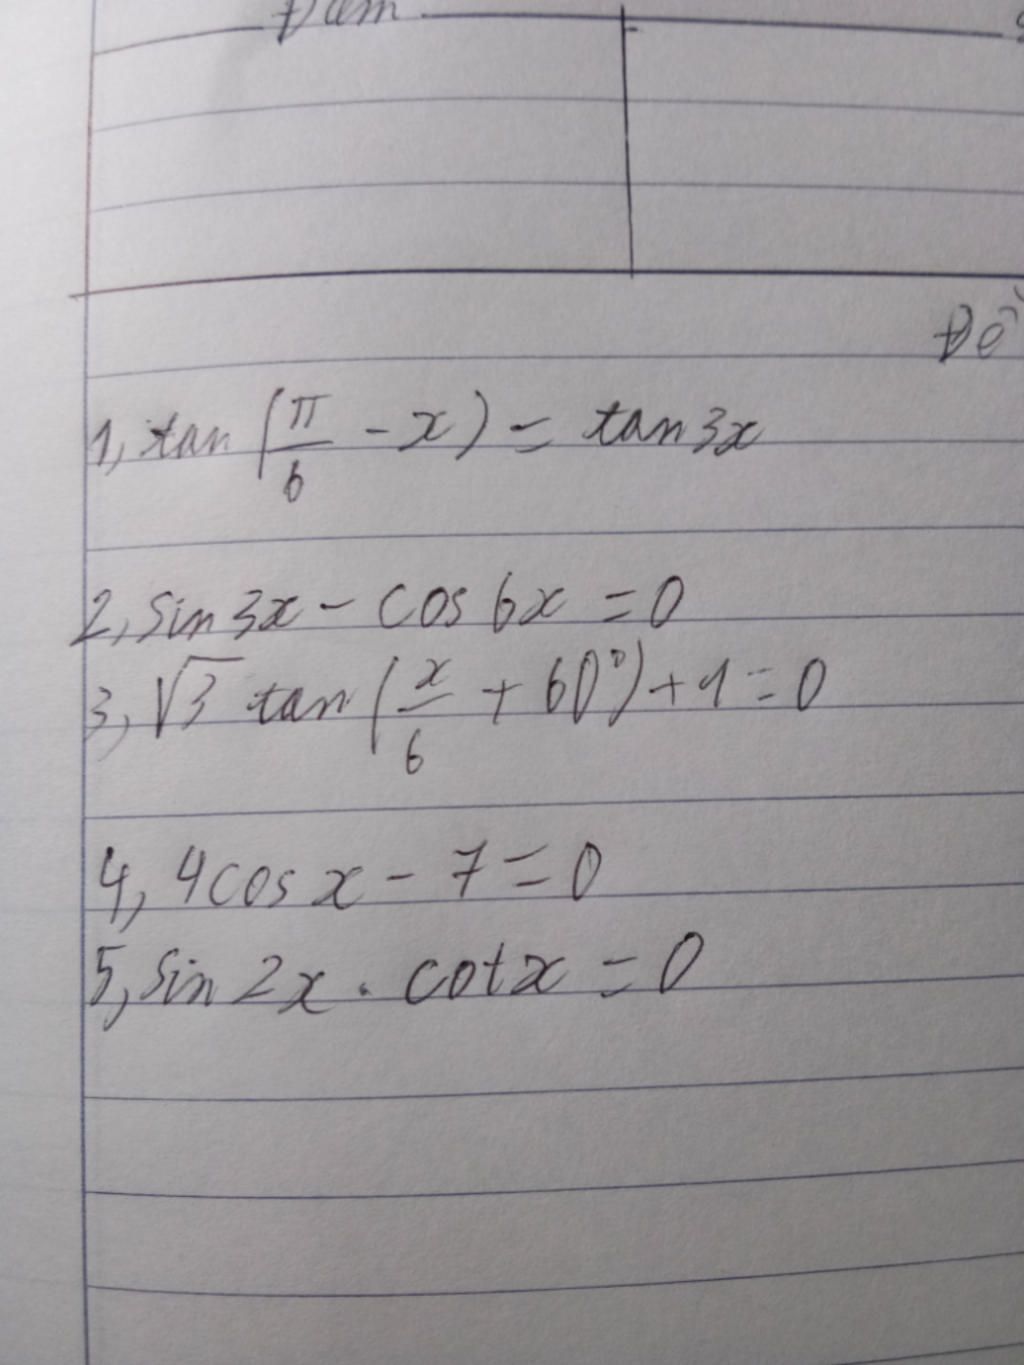 Đề
1, tan (π/6 - x) = tan 3x
2, sin 3x - cos 6x = 0
3, √3 tan (x/6 + 60°) + 1 = 0
4, 4cos x - 7 = 0
5, sin 2x . cotx = 0